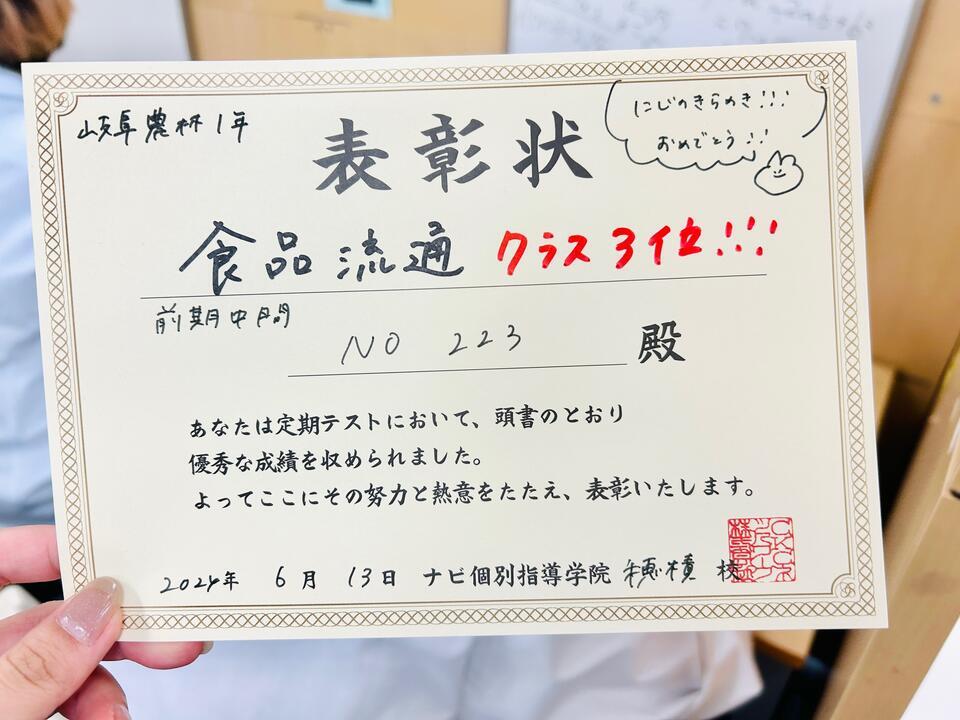 岐阜農林1年
にじのきらめき!!!
おめでとう!!
表彰状
食品流通 クラス3位!!!
前期中間
NO 223 殿
あなたは定期テストにおいて、頭書のとおり
優秀な成績を収められました。
よってここにその努力と熱意をたたえ、表彰いたします。
2024年 6月 13日 ナビ個別指導学院 穂積 校